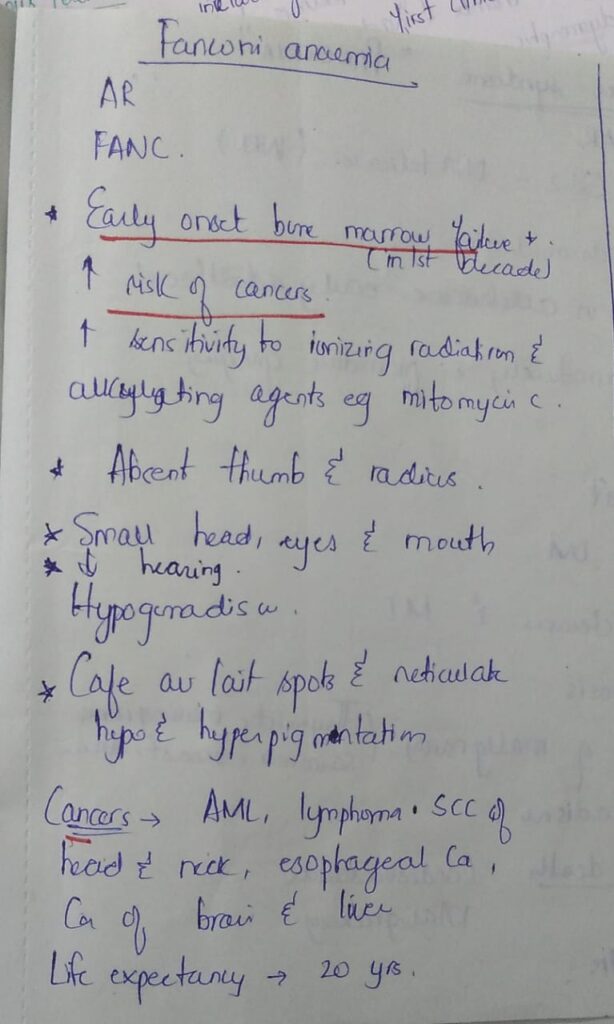 First
Fanconi anaemia
AR
FANC.
* Early onset bone marrow failure +
(in 1st decade)
↑ risk of cancers.
↑ sensitivity to ionizing radiation &
agents eg mitomycin c.
* Abcent thumb & radius.
* Small head, eyes & mouth
* ↓ hearing.
Hypogonadism.
* Cafe au lait spots & reticulate
hypo & hyperpigmentation
Cancers → AML, lymphoma. SCC of
head & neck, esophageal Ca,
Ca of brain & liver
Life expectancy → 20 yrs.